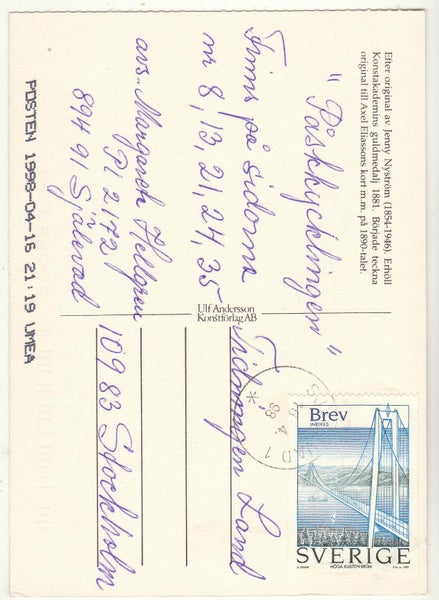 Efter original av Jenny Nyström (1854-1946). Erhöll
Konstakademins guldmedalj 1881. Började teckna
original till Axel Eliassons kort m.m. på 1890-talet.
"Påskkycklingen"
Finns på sidorna
nr 8, 13, 21, 24, 35
avs. Margareta Hellgren
Pl 2172
894 91 Själevad
Ulf Andersson
Konstförlag AB
Tidningen Land
109 83 Stockholm
Brev
INRIKES
SVERIGE
HÖGA KUSTEN-BRON
POSTEN 1998-04-16 21:19 UMEA